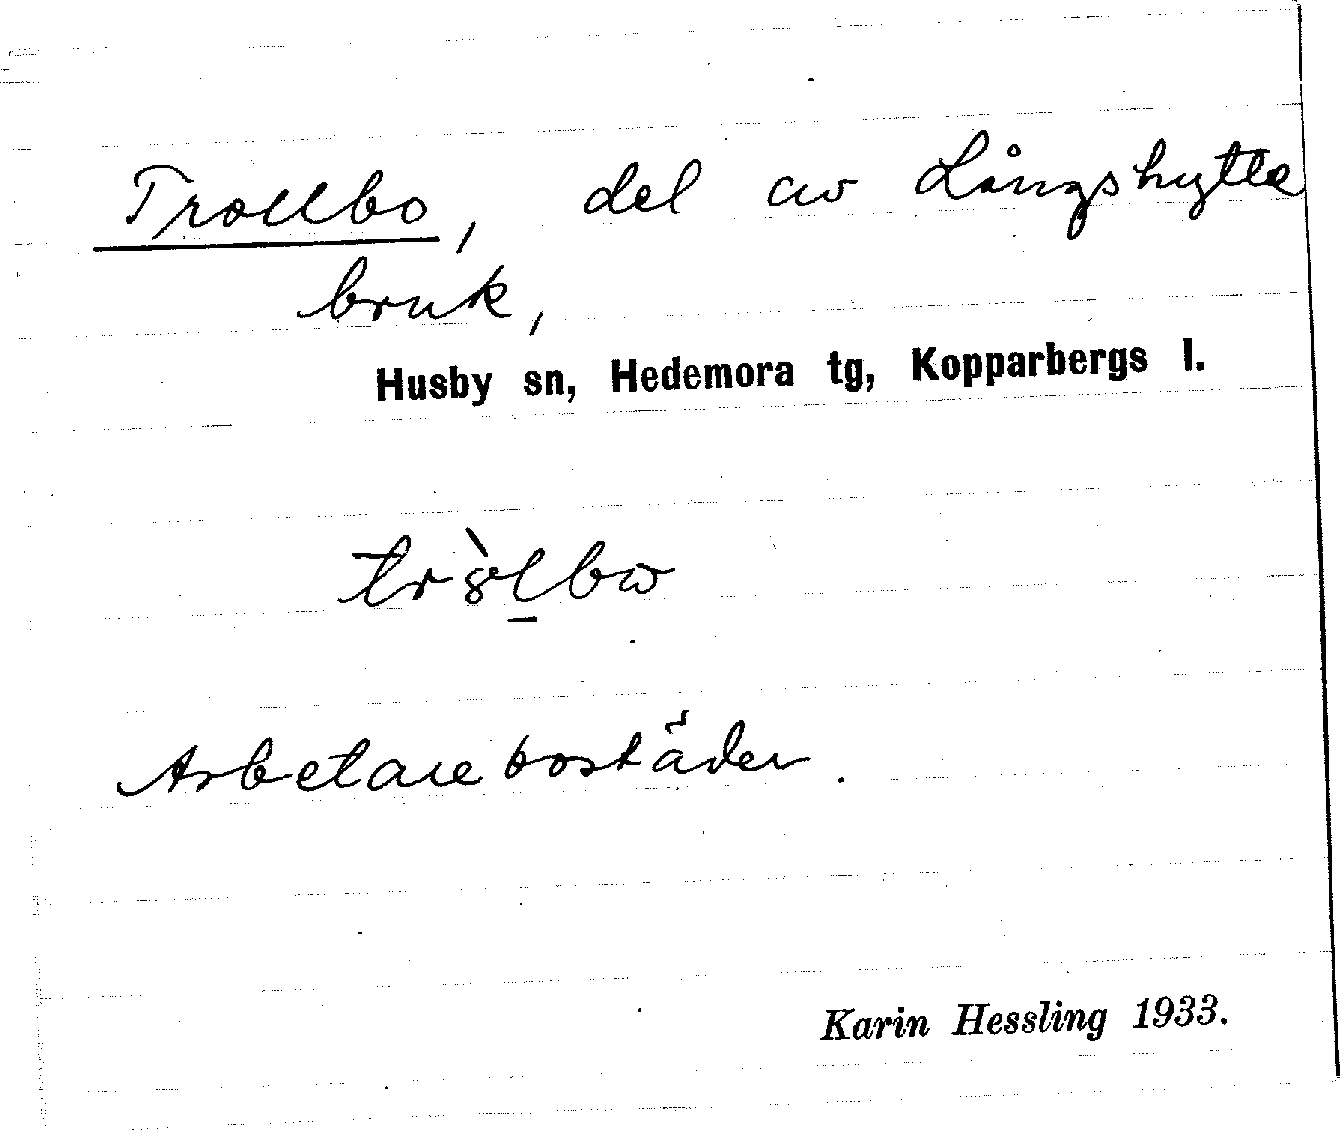 Trollbo, del av Långshytte
bruk,
Husby sn, Hedemora tg, Kopparbergs l.
Arbetarebostäder.
Karin Hessling 1933.